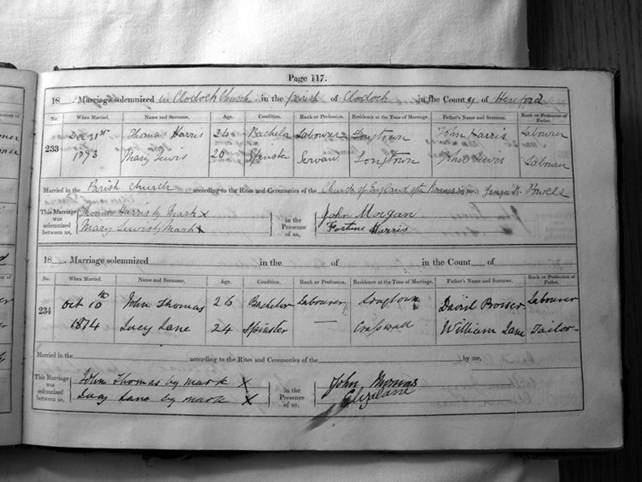 Page 117.
18 . Marriage solemnized in Clodock Church in the parish of Clodock in the County of Hereford
No. When Married. Name and Surname. Age. Condition. Rank or Profession. Residence at the Time of Marriage. Father's Name and Surname. Rank or Profession of Father.
233 Dec 31st Thomas Harris 24 Bachelor Labourer Longtown John Harris Labourer
1873 Mary Lewis 20 Spinster Servant Longtown Lewis Labourer
Married in the Parish Church according to the Rites and Ceremonies of the Church of England after Banns by me, Powell
This Marriage was solemnized between us, Thomas Harris by Mark X in the Presence of us, John Morgan
Mary Lewis by Mark X Fortune Harris
18 . Marriage solemnized in the of in the Count of
No. When Married. Name and Surname. Age. Condition. Rank or Profession. Residence at the Time of Marriage. Father's Name and Surname. Rank or Profession of Father.
234 Oct 10th John Thomas 26 Bachelor Labourer Longtown David Prosser Labourer
1874 Lucy Lane 24 Spinster — William Lane Tailor
Married in the according to the Rites and Ceremonies of the by me,
This Marriage was solemnized between us, John Thomas by mark X in the Presence of us, John
Lucy Lane by mark X Eliza Lane